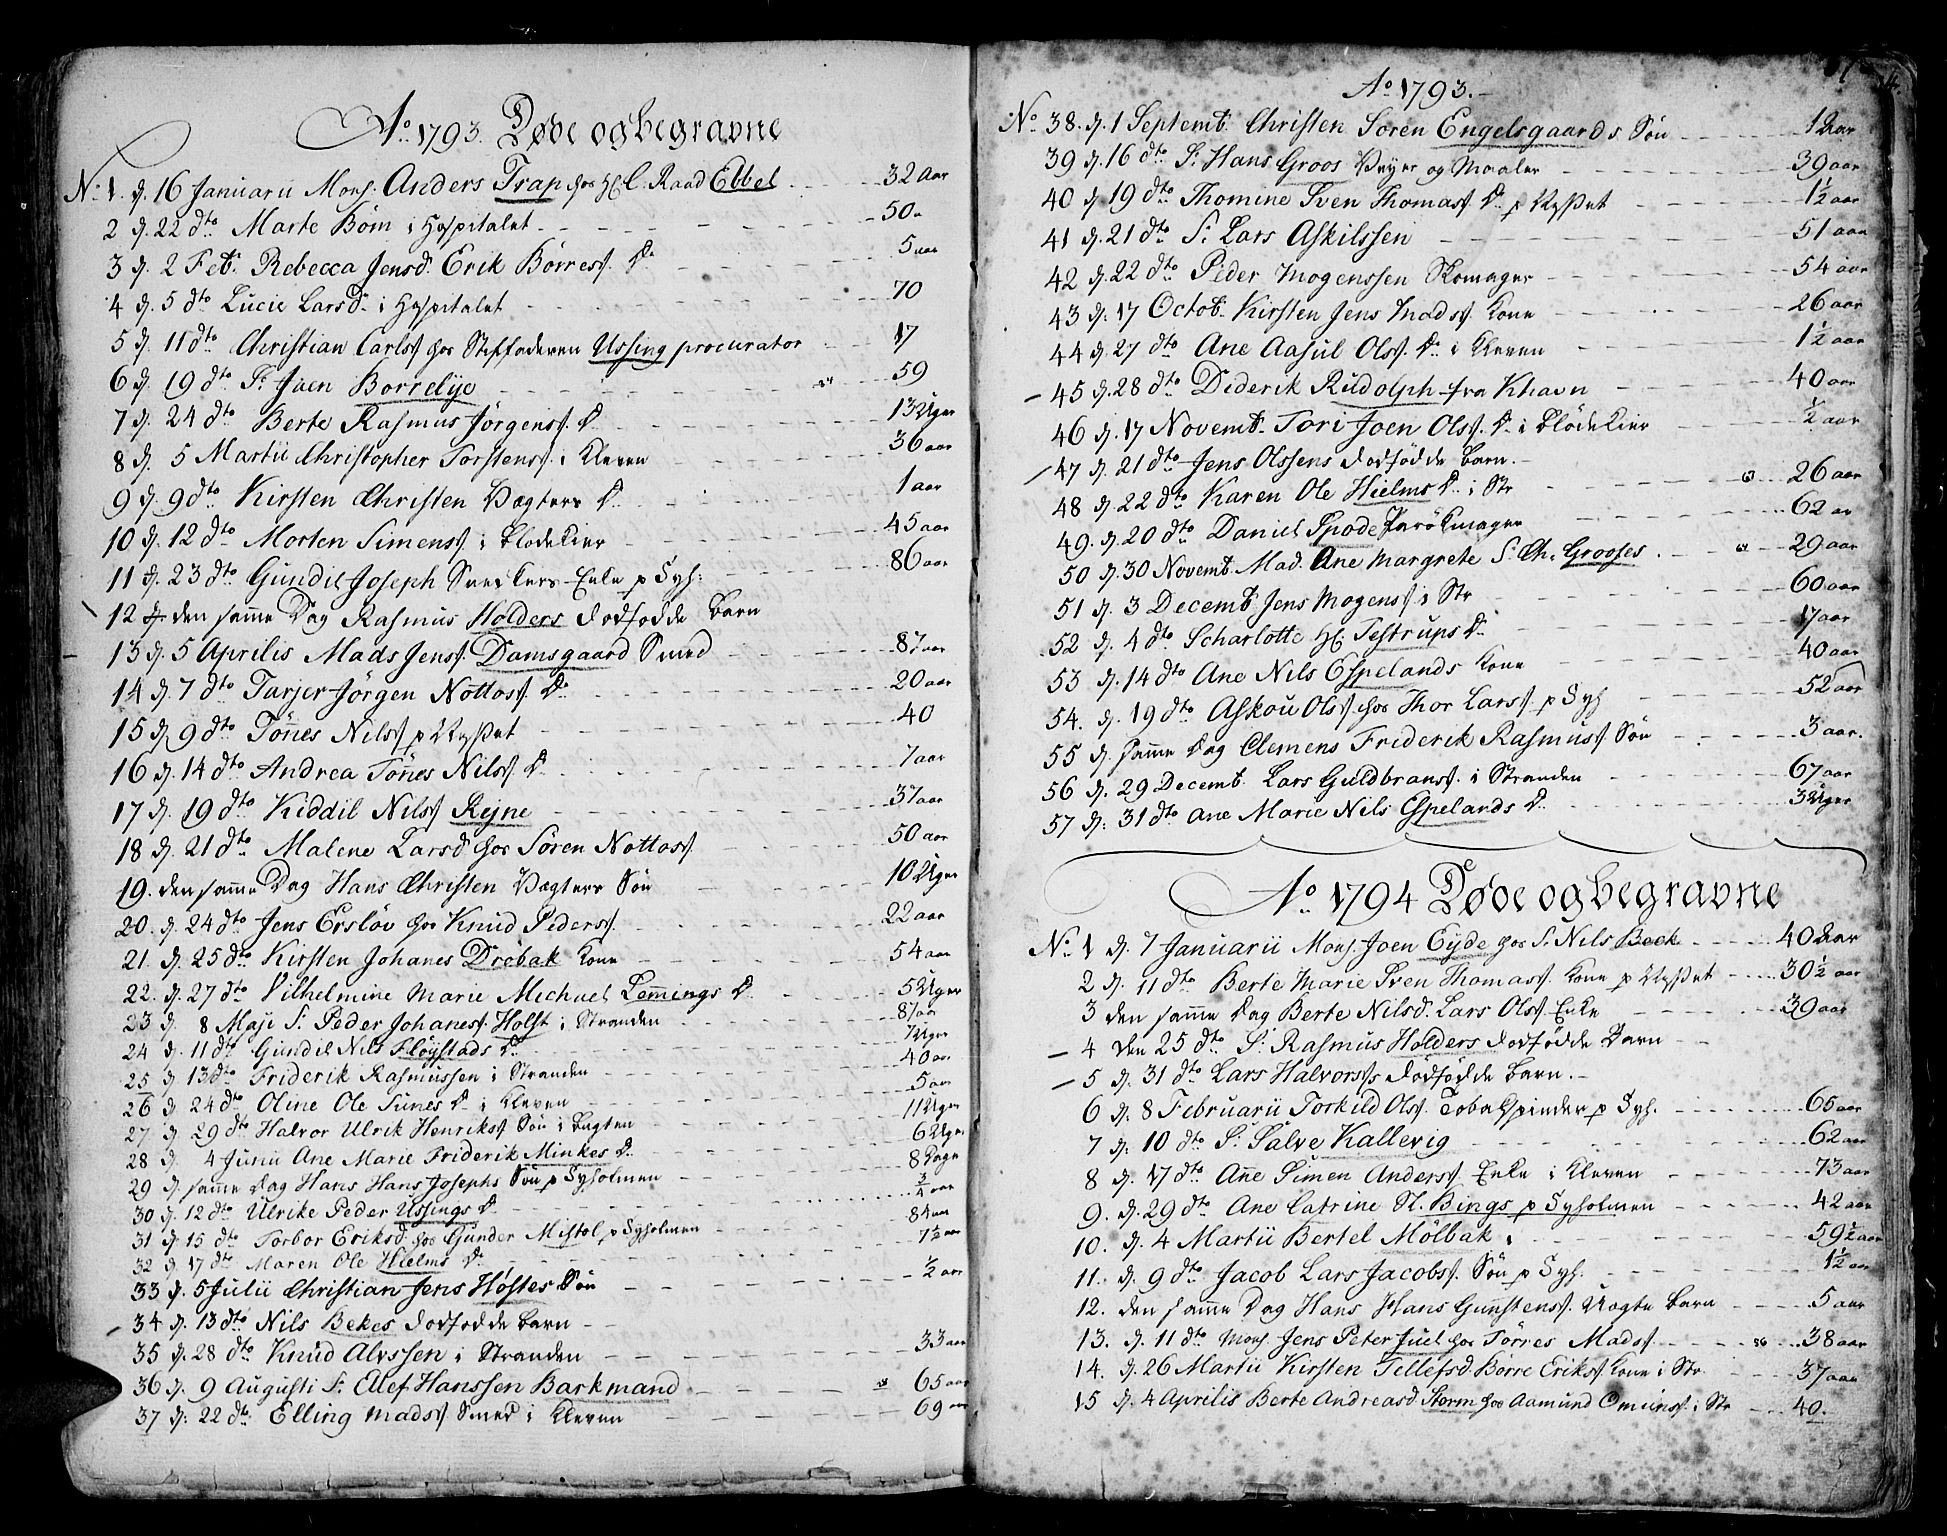 Ao 1793. Døde og begravne
No 1. d. 16 Januarii Mons. Anders Trap hos H. C. Raad Ebbel 32 Aar
2 d. 22 dto Marte Böm i Hospitalet 50
3 d. 2 Feb. Rebecca Jensd. Erik Börres. D. 5 aar
4 d. 5 dto Lucie Larsd. i Hospitalet 70
5 d. 11 dto Christian Carls. hos Stiffaderen Ussing procurator 17
6 d. 19 dto Sr Joen Borrelye 59
7 d. 24 dto Berte Rasmus Jörgens. D 13 Uger
8 d. 5 Martii Christopher Torstens. i Kleven 36 aar
9 d. 9 dto Kirsten Christen Vægters D. 1 aar
10 d. 12 dto Morten Simens. i Blödekier 45 aar
11 d. 23 dto Gundil Joseph Snedkers Enke p Syh: 86 aar
12 d. den samme Dag Rasmus Holders dodfødde Barn
13 d. 5 Aprilis Mads Jens. Damsgaard Smed 87 aar
14 d. 7 dto Tarjer Jörgen Nottos. D. 20 aar
15 d. 9 dto Tönes Nils. p Nesset 40
16 d. 14 dto Andrea Tönes Nils. D. 7 aar
17 d. 19 dto Kiddil Nils. Rejne 37 aar
18 d. 21 dto Malene Larsd hos Sören Nottos. 50 aar
19. den samme Dag Hans Christen Vægters Sön 10 Uger
20. d. 24 dto Jens Erslöv hos Knud Peders. 22 aar
21. d. 25 dto Kirsten Johanes Dröbak Kone 54 aar
22. d. 27 dto Vilhelmine Marie Michael Lemings D. 5 Uger
23 d. 8 Maji S. Peder Johanes. Holst i Stranden 87 aar
24 d. 11 dto Gundil Nils Flöystads D. 7 Uger
25 d. 13 dto Friderik Rasmussen i Stranden 40 aar
26 d 24 dto Oline Ole Tunes D. i Kleven 5 aar
27 d 29 dto Halvor Ulrik Henriks. Sön i Bugten 11 Uger
28 d 4 Junii Ane Marie Friderik Minkes D. 6 Uger
29 d. samme Dag Hans Hans Josephs Sön p Syholmen 8 Dage
30 d. 12 dto Ulrike Peder Ussings D. 3/4 aar
31 d. 15 dto Torbor Eriksd hos Gunder Mistol p Syholmen 84 aar
32 d. 17 dto Maren Ole Hielms D. 1 1/2 aar
33 d. 5 Julii Christian Jens Höstes Sön 1/2 aar
34 d. 13 dto Nils Bekes dodfödde Barn
35 d. 28 dto Knud Alvssen i Stranden 33 aar
36 d. 9 Augusti S. Ellef Hanssen Barkmand 65 aar
37 d. 22 dto Elling Mads. Smed i Kleven 69 aar
Ao 1793.
No 38. d. 1 Septemb. Christen Soren Engelsgaards Sön 1 Aar
39 d. 16 dto S. Hans Groos Veyer og Maaler 39 aar
40 d 19 dto Thomine Sven Thomas. D. p Nesset 1 1/2 aar
41 d. 21 dto S. Lars Askilssen 51 aar
42 d. 22 dto Peder Mogenssen Skomager 54 aar
43 d. 17 Octob. Kirsten Jens Mads. Kone 26 aar
44 d. 27 dto Ane Aasul Ols. D. i Kleven 1 1/2 aar
45 d. 28 dto Diderik Rudolph fra Khavn 40 aar
46 d. 17 Novemb. Tori Joen Ols. D. i Blödekier 1/2 aar
47 d. 21 dto Jens Olssens dodfödde Barn.
48 d 22 dto Karen Ole Hielms D. i Str 26 aar
49. d. 20 dto Daniel Spode Parökmager 62 ar
50 d. 30 Novemb. Mad. Ane Margrete S. Ch. Grooses 29 aar
51 d. 3 Decemb. Jens Mogens. i Str 60 aar
52 d. 4 dto Scharlotte H. Testrups D. 17 aar
53 d. 14 dto Ane Nils Espelands Kone 40 aar
54. d. 19 dto Askou Ols. hos Thor Lars. p Syh 52 aar
55 d. samme Dag Clemens Friderik Rasmus. Sön 3 aar.
56 d. 29 Decemb. Lars Guldbrans. i Stranden 67 aar
57 d. 31 dto Ane Marie Nils Espelands D. 3 Uger
Ao 1794 Døde og begravne
No 1 d. 7 Januarii Mons. Joen Eyde hos S. Nils Beck 40 Aar
2 d. 11 dto Berte Marie Sven Thomas. Kone p Nesset 30 1/2 aar
3 den samme Dag Berte Nilsd. Lars Ols. Enke 39 aar
4 den 25 dto S. Rasmus Holders dodfødde Barn
5 d. 31 dto Lars Halvors.s dödfödde Barn.
6 d. 8 Februarii Torkild Ols. Tobakspinder p Syh. 65 aar
7 d. 10 dto S. Salve Kallevig 62 aar
8 d. 17 dto Ane Simen Anders. Enke i Kleven 73 aar
9. d. 29 dto Ane Catrine Sl. Bings p Syholmen 42 aar
10. d. 4 Martii Bertel Mölbak 59 1/2 aar
11. d. 9 dto Jacob Lars Jacobs. Sön p Syh. 1 1/2 aar
12. den samme Dag Hans Hans Gunstens. Uægte Barn 5 aar
13. d. 11 dto Mons. Jens Peter Juel hos Törres Mads. 38 aar
14. d. 26 Martii Kirsten Tellefsd Börre Eriks. Kone i Str 37 aar
15 d. 4 Aprilis Berte Andreasd Storm hos Aamund Omuns. i Str 40.